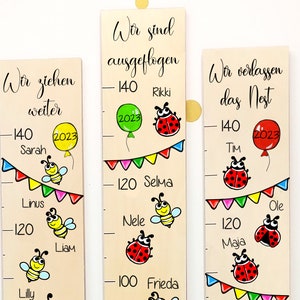 Wir ziehen
weiter
140
2023
Sarah
Linus
120
Liam
Lilly
Wir sind
ausgeflogen
140
Rikki
2023
120
Selma
Nele
100
Frieda
Wir verlassen
das Nest
140
2023
Tim
120
Ole
Maja
100